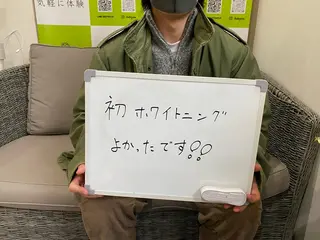 気軽に体験
初ホワイトニング
よかったです!!